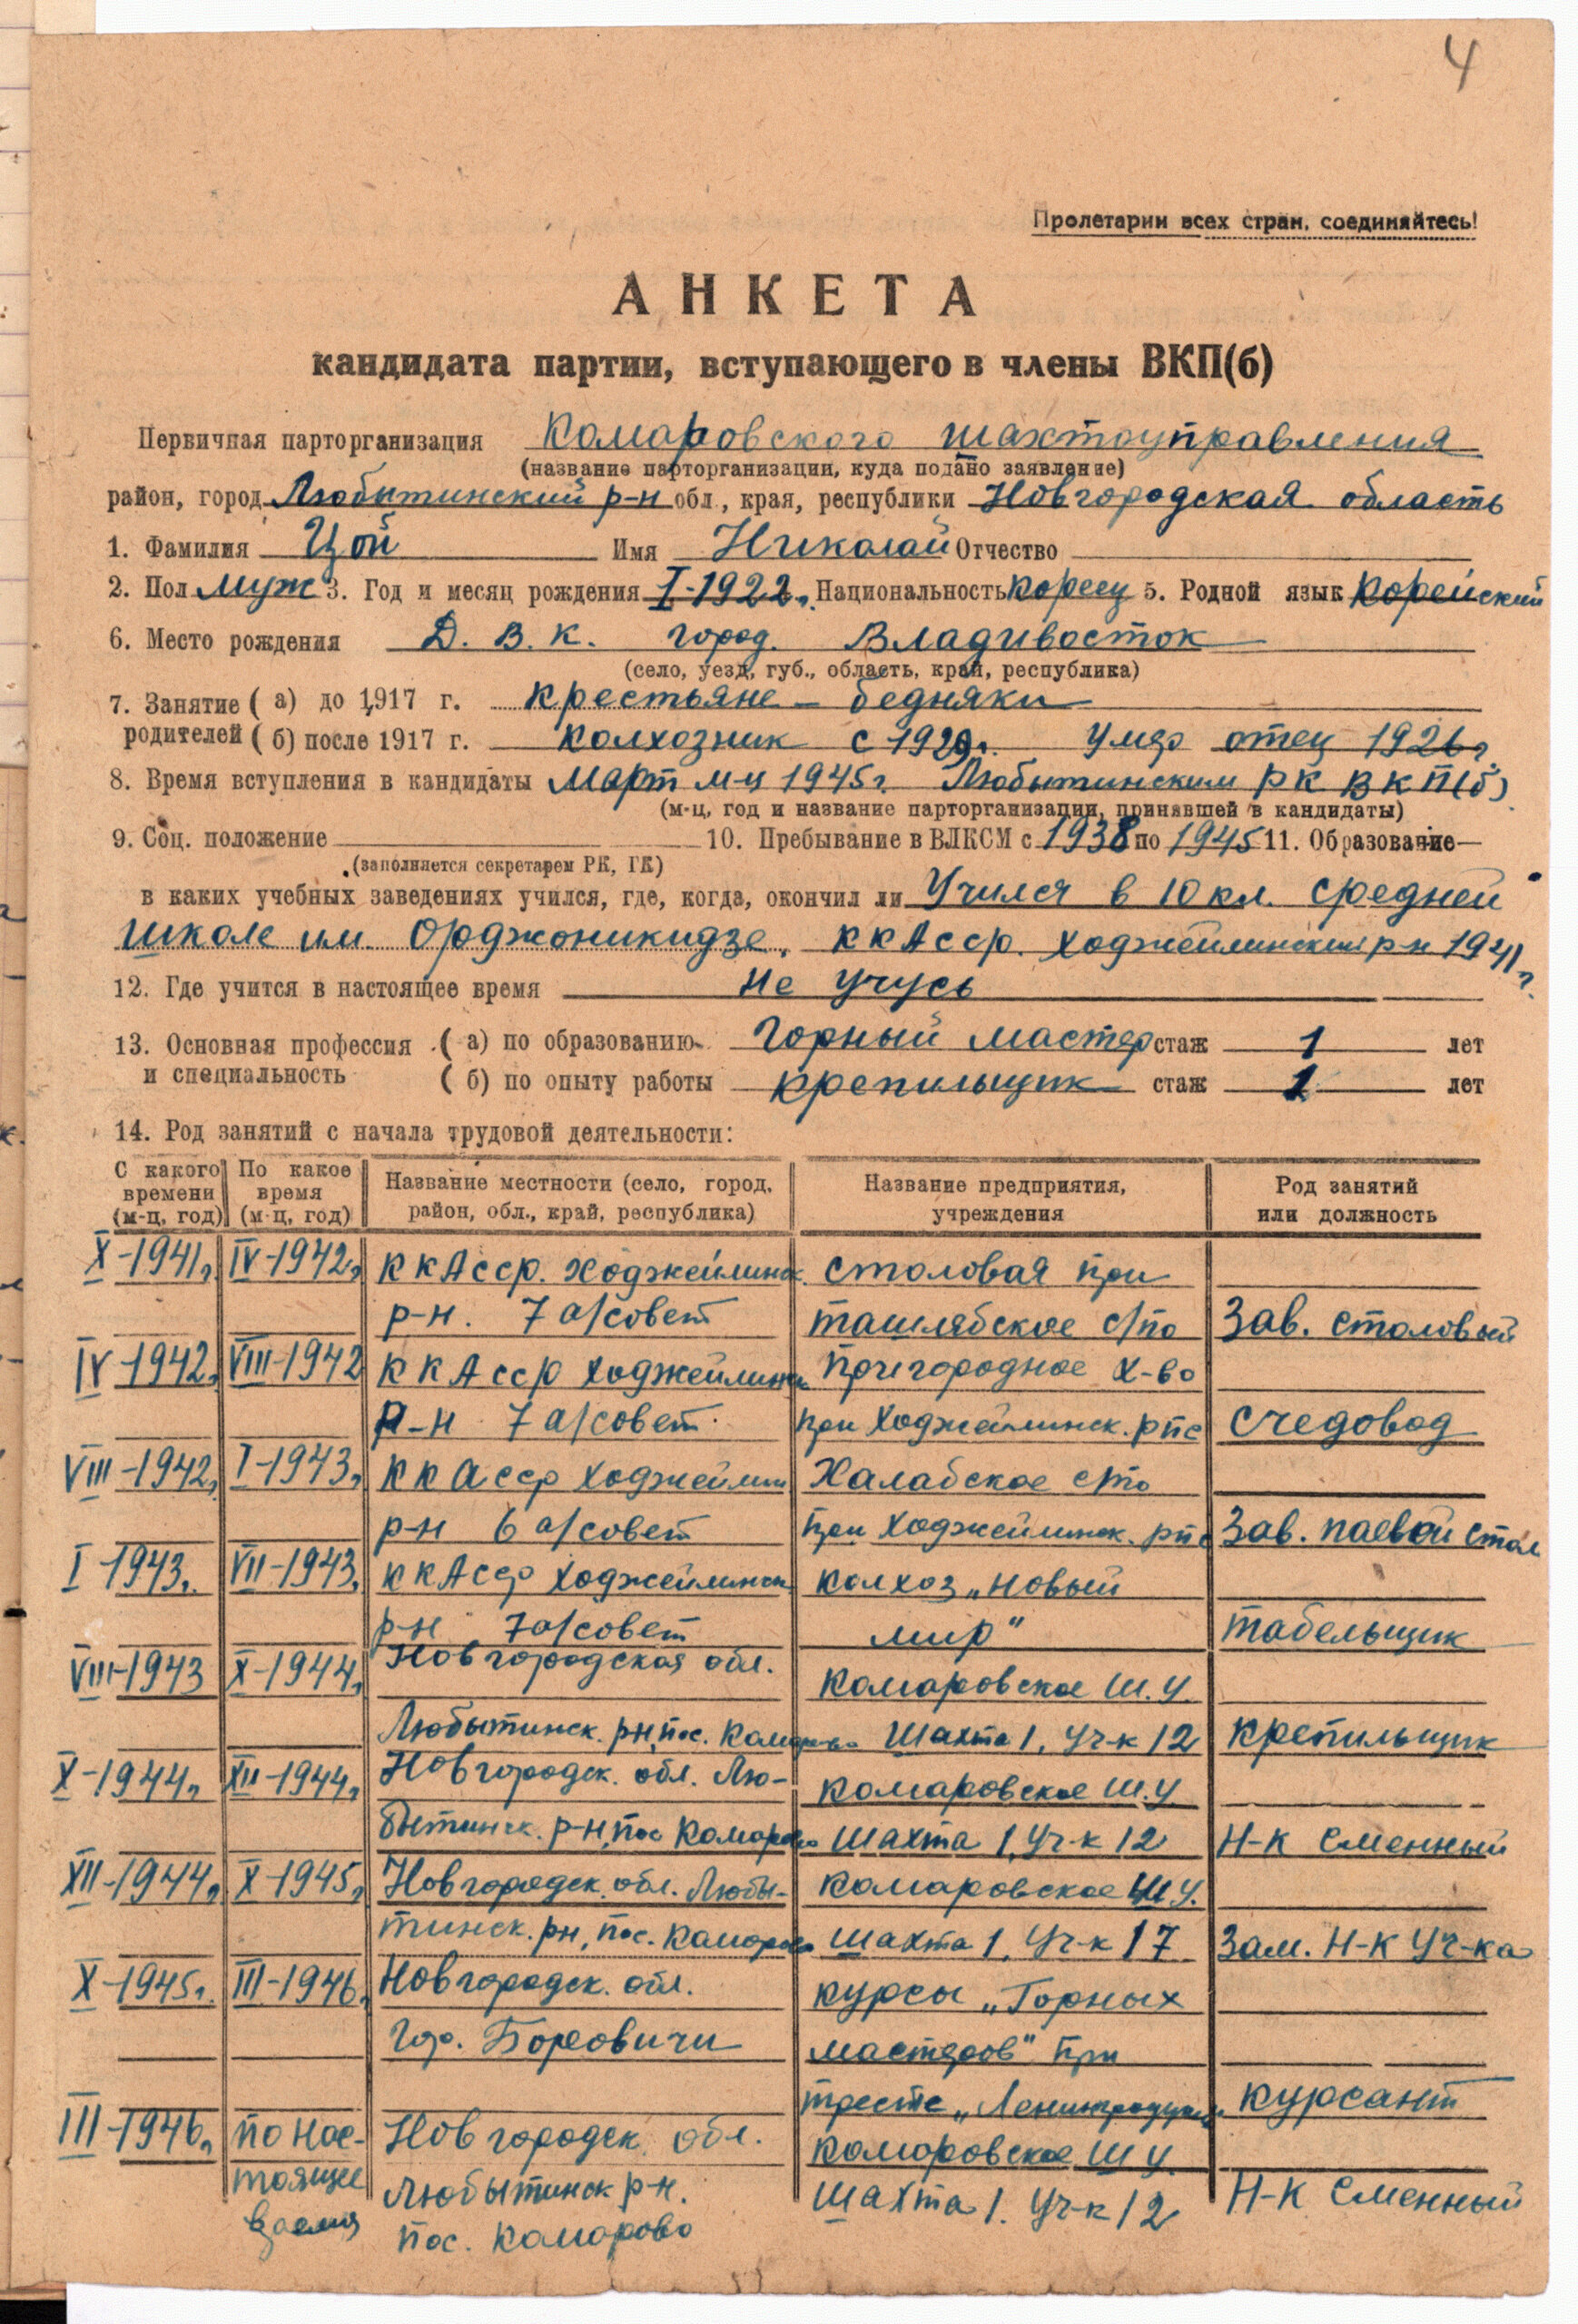 4
Пролетарии всех стран, соединяйтесь!
АНКЕТА
кандидата партии, вступающего в члены ВКП(б)
Первичная парторганизация Комаровского шахтоуправления
(название парторганизации, куда подано заявление)
район, город Любытинский р-н обл., края, республики Новгородская область
1. Фамилия Цой Имя Николай Отчество
2. Пол муж 3. Год и месяц рождения I-1922г. Национальность кореец 5. Родной язык Корейский
6. Место рождения Д. В. К. город. Владивосток
(село, уезд, губ., область, край, республика)
7. Занятие ( а) до 1917 г. крестьяне - бедняки
родителей ( б) после 1917 г. колхозник с 1929г. умер отец 1926г.
8. Время вступления в кандидаты Март м-ц 1945г. Любытинским РК ВКП(б).
(м-ц, год и название парторганизации, принявшей в кандидаты)
9. Соц. положение 10. Пребывание в ВЛКСМ с 1938 по 1945 11. Образование—
(заполняется секретарем РК, ГК)
в каких учебных заведениях учился, где, когда, окончил ли Учился в 10 кл. средней
школе им. Орджоникидзе, ККАССР. Ходжейлинский р-н 1941г.
12. Где учится в настоящее время не учусь
13. Основная профессия ( а) по образованию Горный мастер стаж 1 лет
и специальность ( б) по опыту работы крепильщик стаж 1 лет
14. Род занятий с начала трудовой деятельности:
С какого По какое Название местности (село, город, Название предприятия, Род занятий
времени время район, обл., край, республика) учреждения или должность
(м-ц, год) (м-ц, год)
X-1941г. IV-1942г. ККАССР. Ходжейлинск. столовая при
р-н. 7 а/совет ташлябское с/по Зав. столовый
IV-1942г. VIII-1942 ККАССР Ходжейлинск Пригородное х-во
р-н 7 а/совет при Ходжейлинск. рпс счедовод
VIII-1942г. I-1943г. ККАССР Ходжейлин Халабское с/по
р-н 6 а/совет при Ходжейлинск. рпс Зав. паевой стол
I-1943г. VII-1943г. ККАССР Ходжейлинск колхоз „Новый
р-н 7 а/совет мир" табельщик
VIII-1943 X-1944г. Новгородская обл. Комаровское Ш.У.
Любытинск. рн, пос. Комарово Шахта 1, Уч-к 12 крепильщик
X-1944г. XII-1944г. Новгородск. обл. Лю- комаровское Ш.У
бытинск. р-н, пос Комарово Шахта 1, Уч-к 12 Н-к Сменный
XII-1944г. X-1945г. Новгородск. обл. Любы- Комаровское ШУ.
тинск. рн, пос. Комарово Шахта 1, Уч-к 17 Зам. Н-к Уч-ка
X-1945г. III-1946г. Новгородск. обл. курсы „Горных
гор. Боровичи мастеров" при
тресте „Ленинградуголь" Курсант
III-1946г. по нас- Новгородск. обл. Комаровское ШУ.
тоящее Любытинск р-н. Шахта 1. Уч-к 12 Н-к Сменный
время пос. Комарово